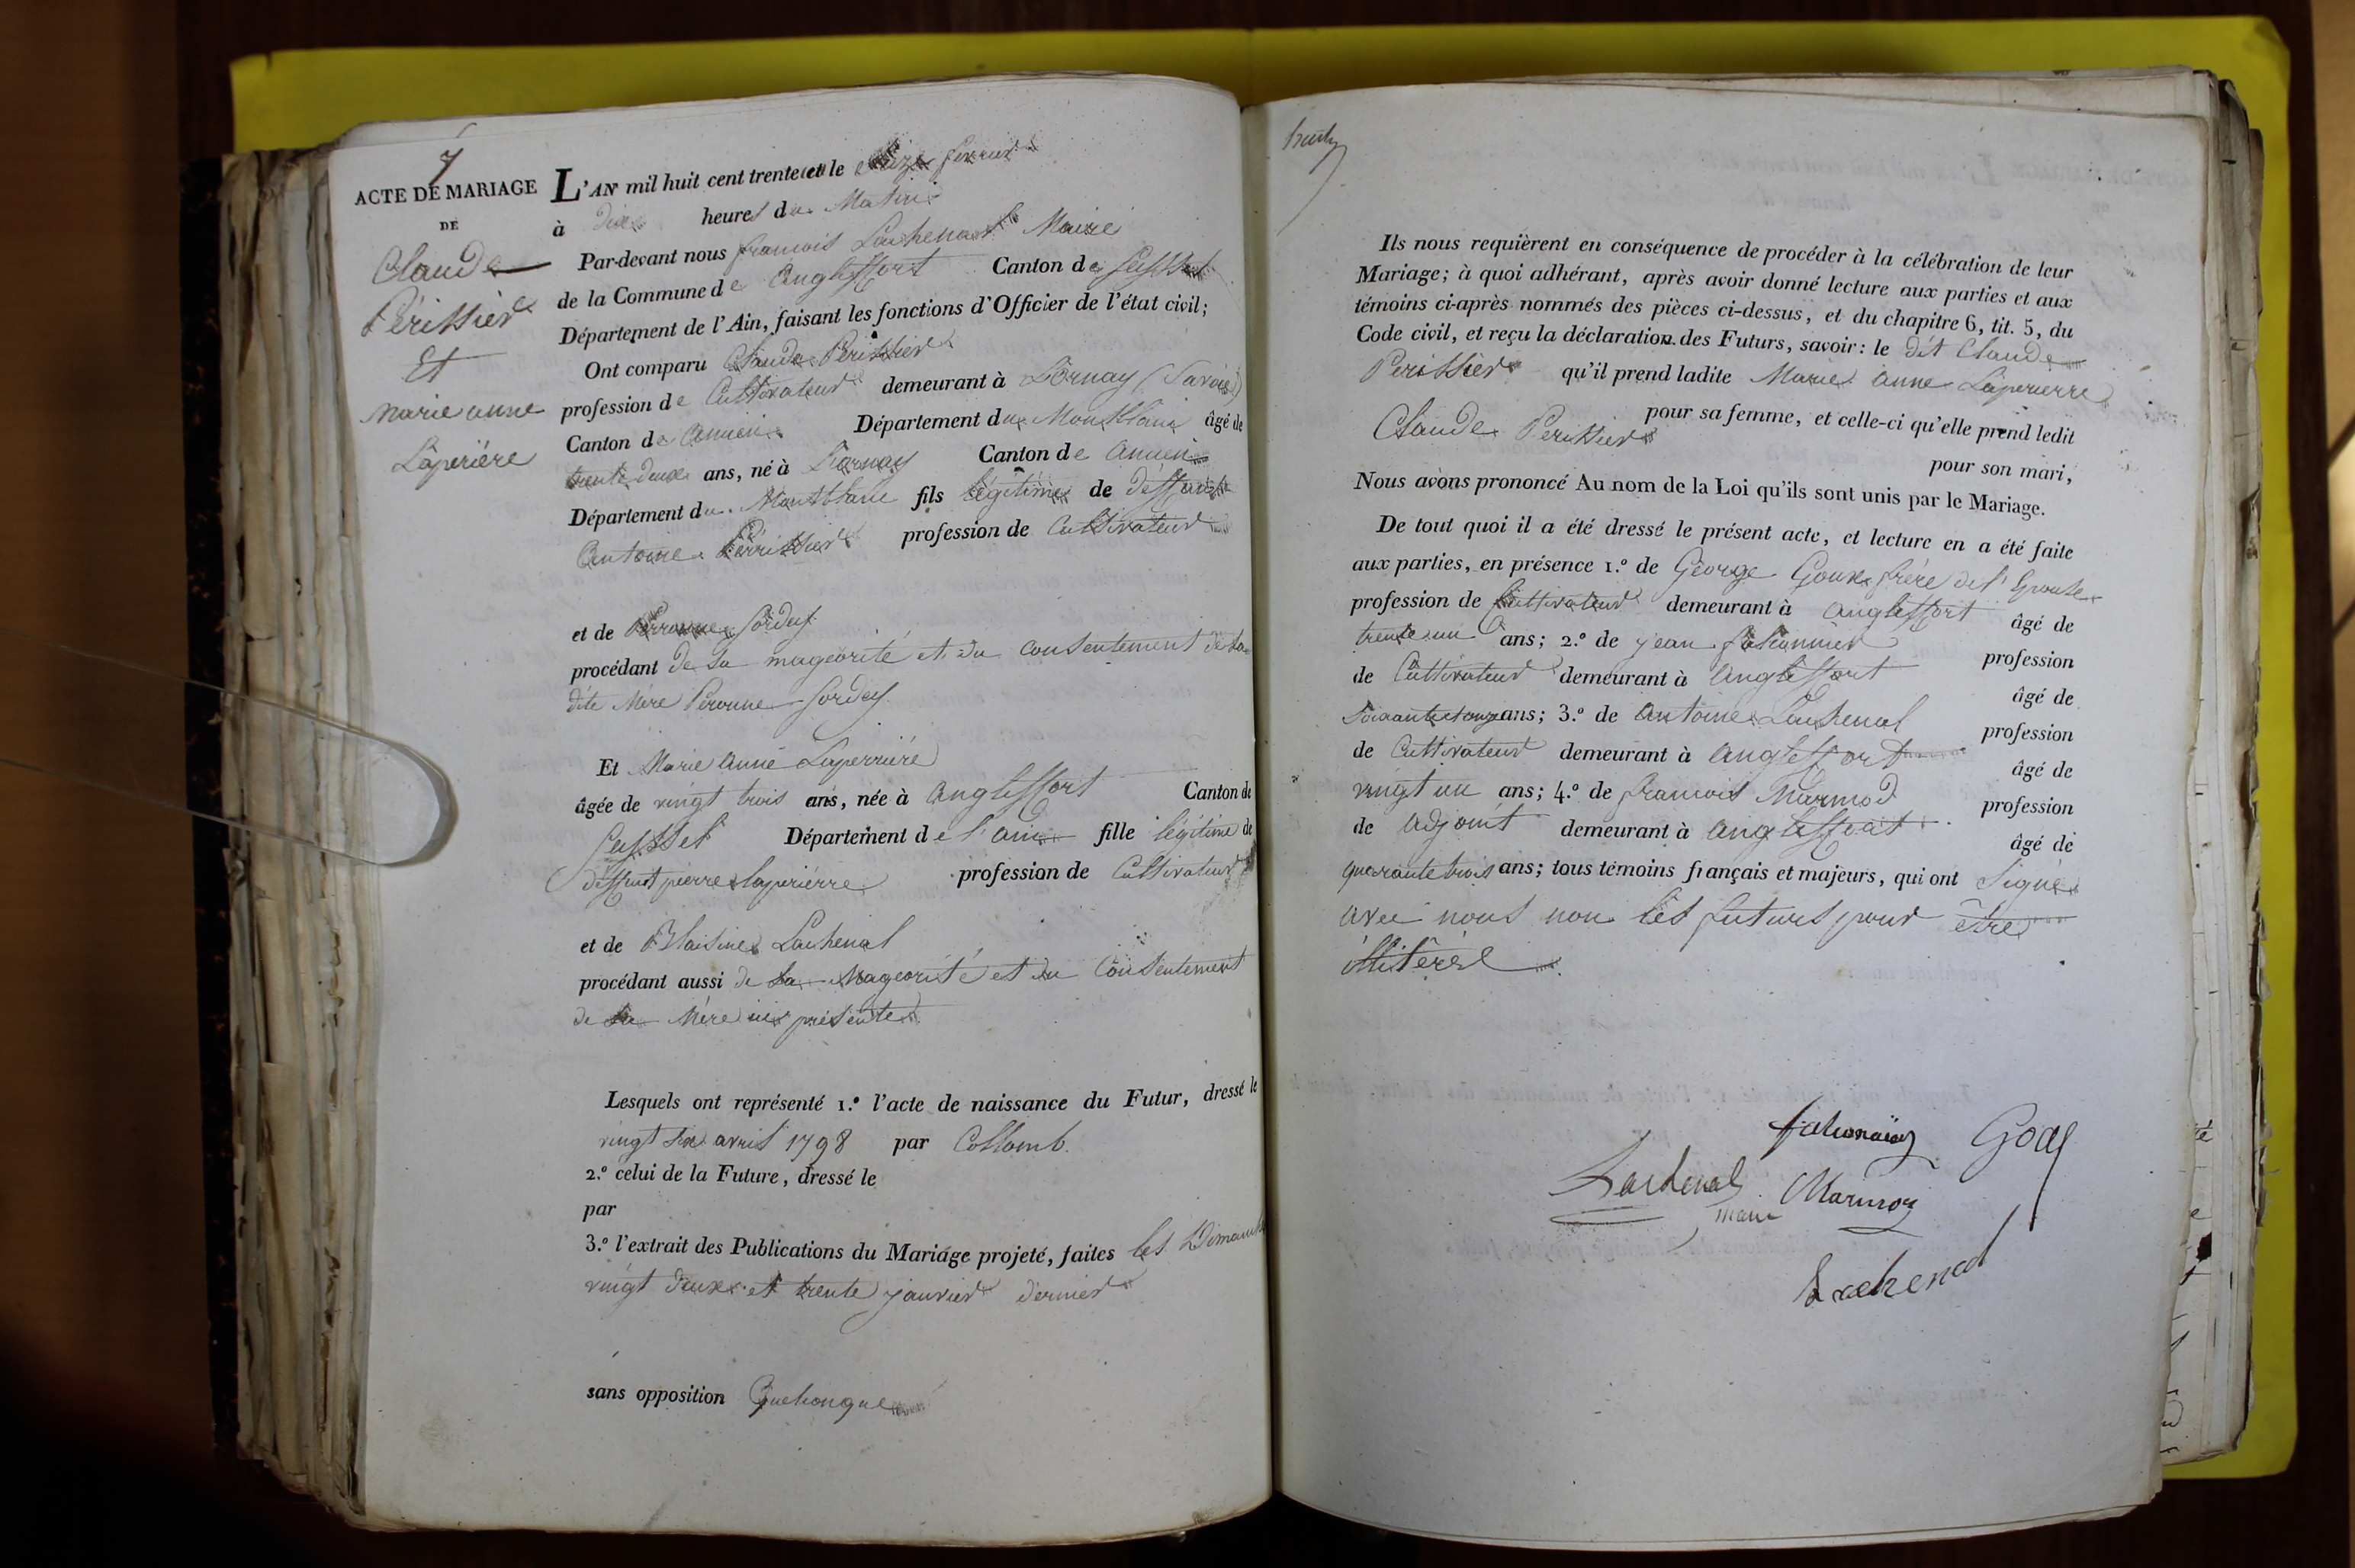 7
ACTE DE MARIAGE
DE
Claude
Périssier
Et
marie anne
Laperière
L'AN mil huit cent trente et le onze fevrier
à dix heures du Matin
Par-devant nous francois Lachenal Maire
de la Commune de Anglessort Canton de Seyssel
Département de l'Ain, faisant les fonctions d'Officier de l'état civil;
Ont comparu Claude Perissier
profession de Cultivateur demeurant à Lornay (Savoie)
Canton de Département du Montblanc âgé de
trente deux ans, né à Lornay Canton de
Département du Montblanc fils légitime de deffunt
Antoine Périssier profession de Cultivateur
et de Perronne Sordey
procédant de sa mageorité et du consentement de sa
dite Mère Peronne Sordey
Et Marie anne Laperrière
âgée de vingt trois ans, née à anglessort Canton de
Seyssel Département de l'ain fille légitime de
deffunt pierre laperièrre profession de Cultivateur
et de Blaisine Lachenal
procédant aussi de sa Mageorité et du Consentement
de sa Mère ici présente
Lesquels ont représenté 1.° l'acte de naissance du Futur, dressé le
vingt six avril 1798 par Collomb.
2.° celui de la Future, dressé le
par
3.° l'extrait des Publications du Mariage projeté, faites les Dimanche
vingt deux et trente janvier dernier
sans opposition Quelconque
huit
Ils nous requièrent en conséquence de procéder à la célébration de leur
Mariage; à quoi adhérant, après avoir donné lecture aux parties et aux
témoins ci-après nommés des pièces ci-dessus, et du chapitre 6, tit. 5, du
Code civil, et reçu la déclaration des Futurs, savoir: le dit Claude
Perissier qu'il prend ladite Marie anne Laperierre
pour sa femme, et celle-ci qu'elle prend ledit
Claude Perissier
pour son mari,
Nous avons prononcé Au nom de la Loi qu'ils sont unis par le Mariage.
De tout quoi il a été dressé le présent acte, et lecture en a été faite
aux parties, en présence 1.° de George Goux frère de l'Epouse
profession de Cultivateur demeurant à anglessort âgé de
trente un ans; 2.° de jean profession
de Cultivateur demeurant à Anglessort âgé de
ans; 3.° de Antoine Lachenal profession
de Cultivateur demeurant à Anglessort âgé de
vingt un ans; 4.° de francois Marmod profession
de adjoint demeurant à anglessort âgé de
quarante trois ans; tous témoins français et majeurs, qui ont Signé
avec nous non les futurs pour être
illitéré
Lachenal Marmod
maire
Lachenal